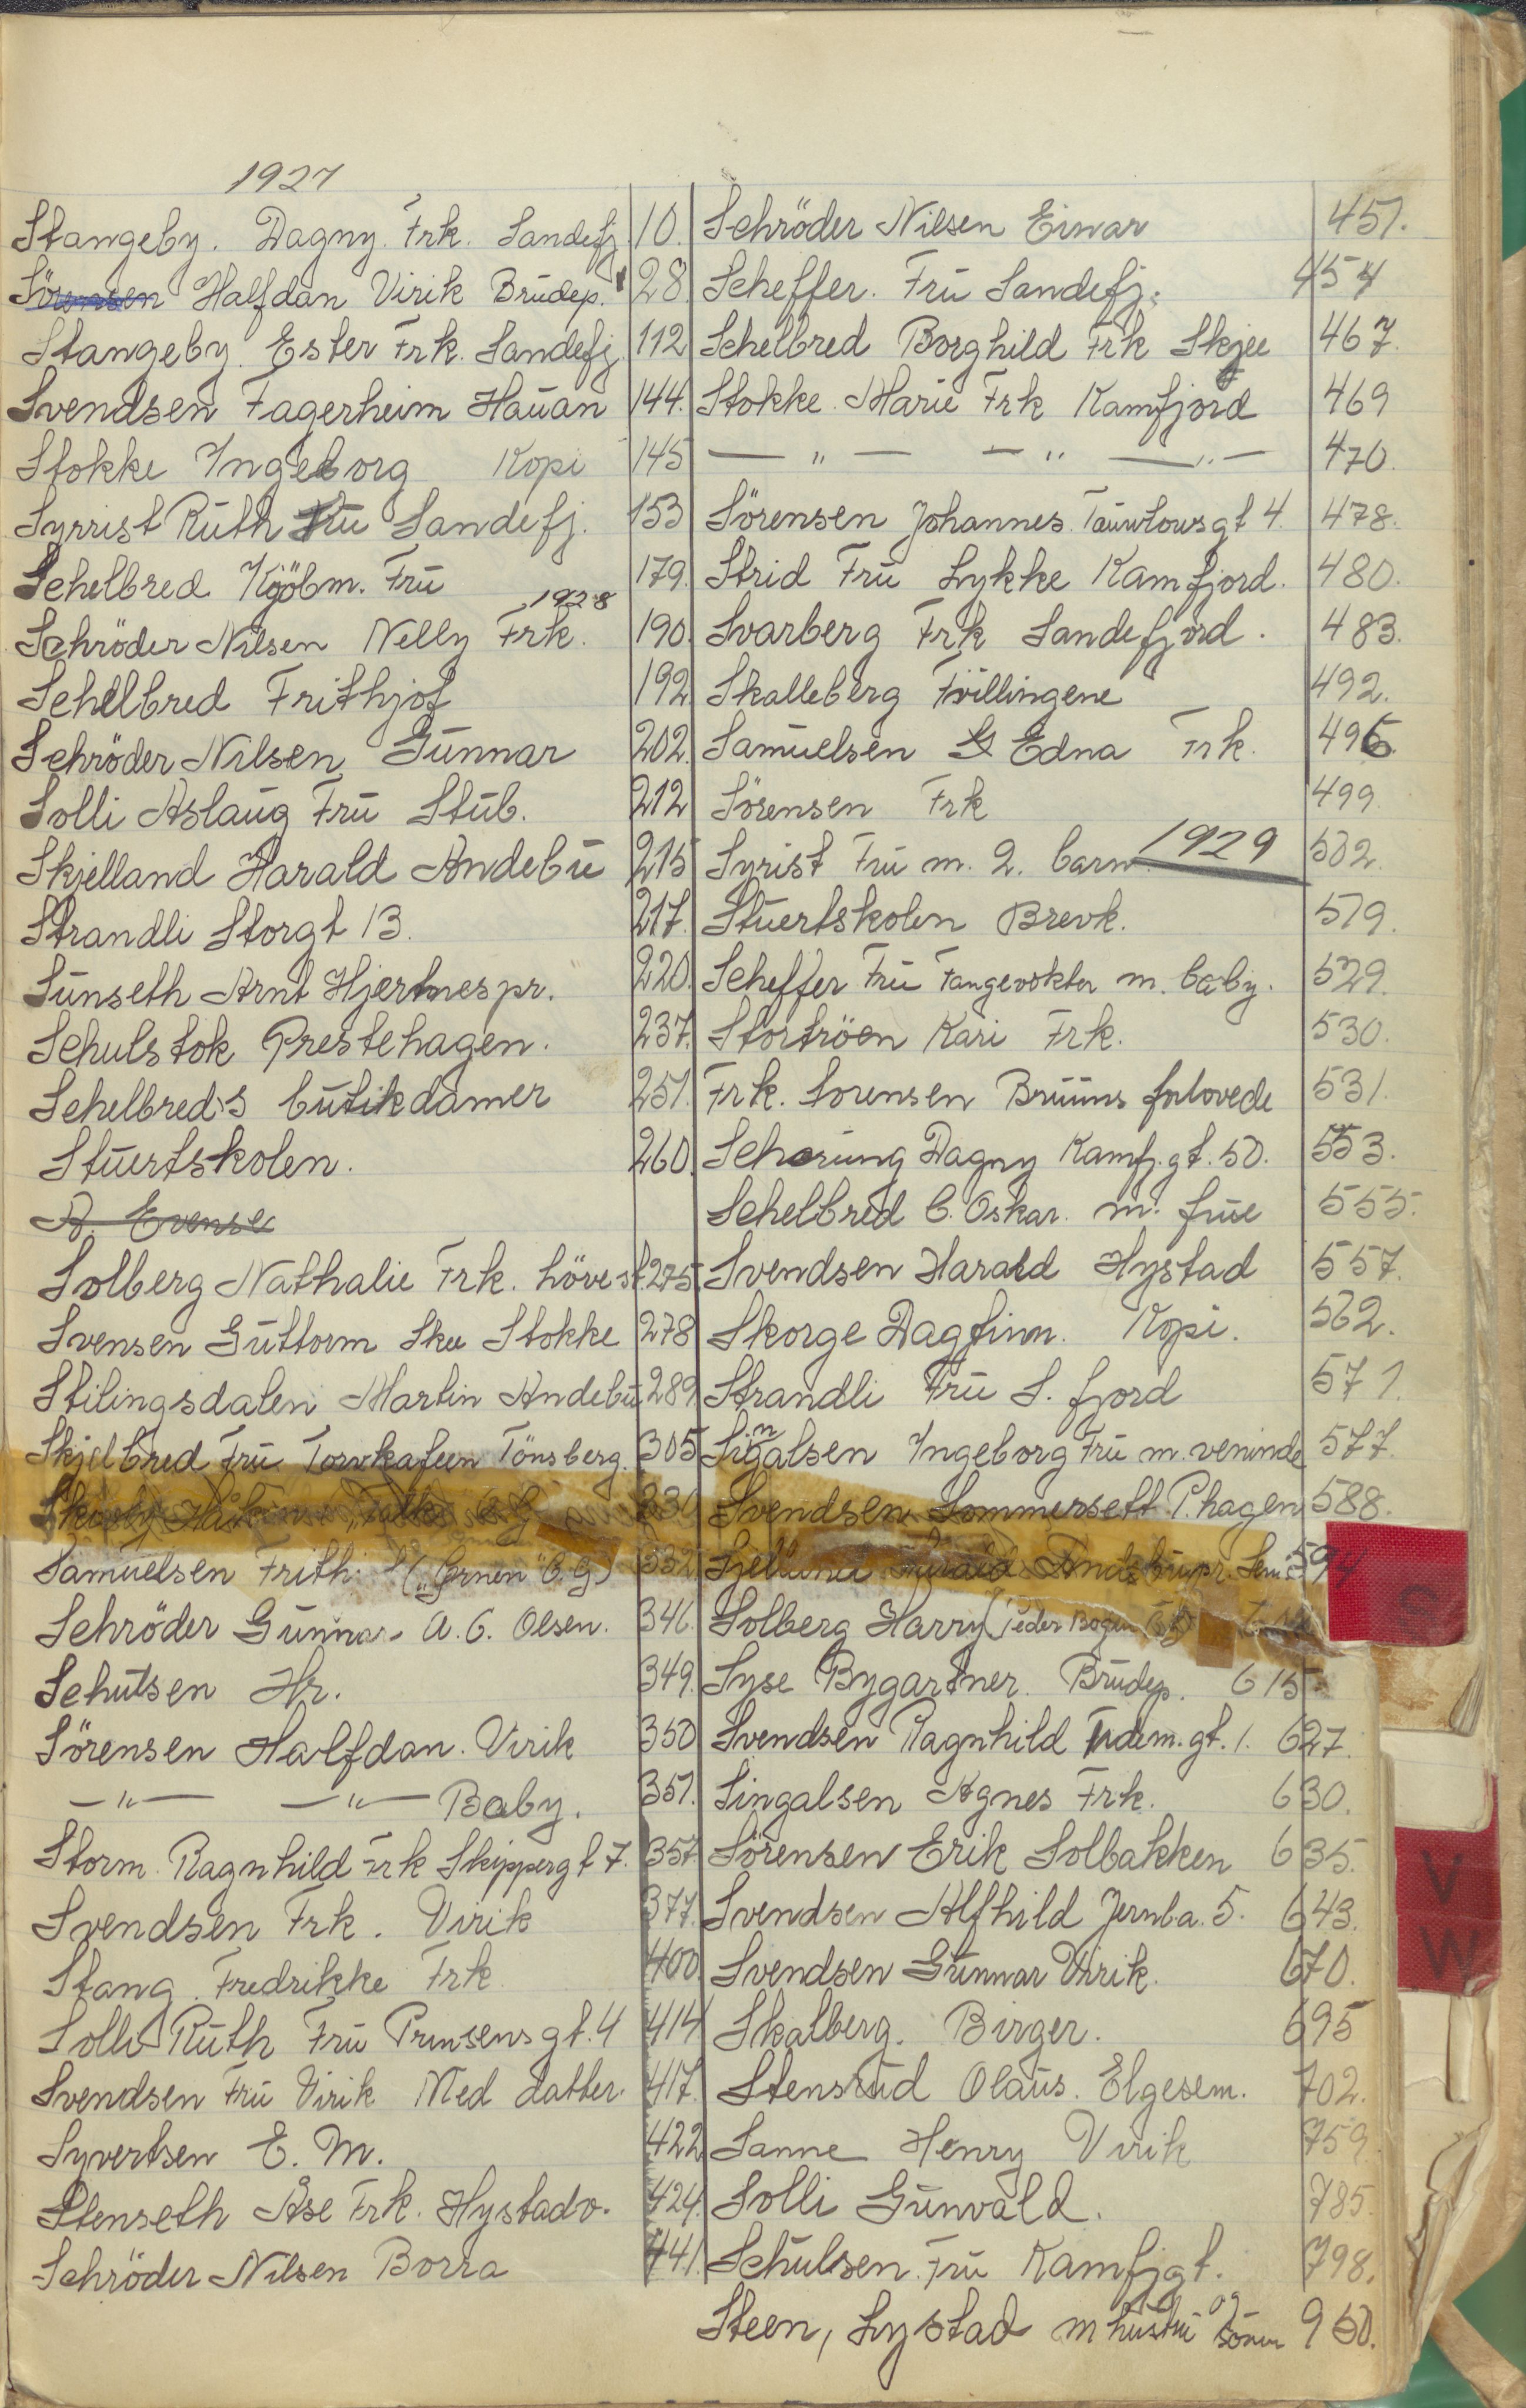 1927
Stangeby. Dagny. Frk. Sandefj. 10.
Sörensen Halfdan Virik Brudep. 28
Stangeby. Ester Frk. Sandefj. 112
Svendsen Fagerheim Hauan 144.
Stokke Ingeborg Kopi 145
Syrrist Ruth Fru Sandefj. 153
Schelbred Kjöbm. Fru 179.
1928
Schröder Nilsen Nelly Frk. 190.
Schelbred Frithjof 192
Schröder Nilsen Gunnar 202.
Solli Aslaug Fru Stub. 212
Skjelland Harald Andebu 215
Strandli Storgt 13. 217.
Sunseth Arnt Hjertnespr. 220.
Schulstok Prestehagen. 237.
Schelbred's butikdamer 251.
Stuertskolen. 260.
A. Evensen
Solberg Nathalie Frk. hövest. 275.
Svensen Guttorm Skee Stokke 278
Stilingsdalen Martin Andebu 289
Skjelbred Fru Torvkafeen Tönsberg. 305
330
Samuelsen Frith. ("Örnen" C.G) 332
Schröder Gunnar A. C. Olsen. 346.
Schutsen Hr. 349.
Sörensen Halfdan. Virik 350
—"— —"— Baby. 351.
Storm. Ragnhild Frk Skippergt 7. 357.
Svendsen Frk. Virik 377.
Stang. Fredrikke Frk 400
Solli Ruth Fru Prinsensgt. 4 414
Svendsen Fru Virik Med datter. 417.
Syvertsen E. M. 422
Stenseth Åse Frk. Hystadv. 424.
Schröder Nilsen Borra 441.
Schröder Nilsen Einar 451.
Scheffer. Fru Sandefj. 454
Schelbred Borghild Frk Skjee 467.
Stokke. Marie Frk Kamfjord 469
—"— —"— —"— 470.
Sörensen Johannes. Tauwlowsgt 4. 478.
Strid Fru Lykke Kamfjord. 480.
Svarberg Frk Sandefjord. 483.
Skalleberg Tvillingene 492.
Samuelsen Edna Frk. 496.
Sörensen Frk 499
Syrist Fru m. 2. barn. 1929 502.
Stuertskolen Brevk. 519.
Scheffer Fru Fangevokter m. baby. 529.
Stortröen Kari Frk. 530.
Frk. Sorensen Bruuns forlovede 531.
Scharung Dagny Kamfj.gt. 50. 553.
Schelbred C. Oskar. m. frue 555.
Svendsen Harald Hystad 557.
Skorge Dagfinn. Kopi. 562.
Strandli Fru S. fjord 571.
Singalsen Ingeborg Fru m. veninde 577.
Svendsen Sommersett P.hagen 588.
Harald Andebupr.
Solberg Harry (Peder Bogen
Syse Bygartner. Brudep. 615.
Svendsen Ragnhild Tidem.gt. 1. 627.
Singalsen Agnes Frk. 630.
Sörensen Erik Solbakken 635.
Svendsen Alfhild Jernba. 5. 643.
Svendsen Gunnar Virik. 670.
Skalberg. Birger. 695
Stensrud Olaus. Elgesem. 702.
Sanne Henry Virik 759.
Solli Gunvald. 785.
Schulsen. Fru Kamfjgt. 798.
Steen, Lystad m hustru og sönn 950.
S
V
W